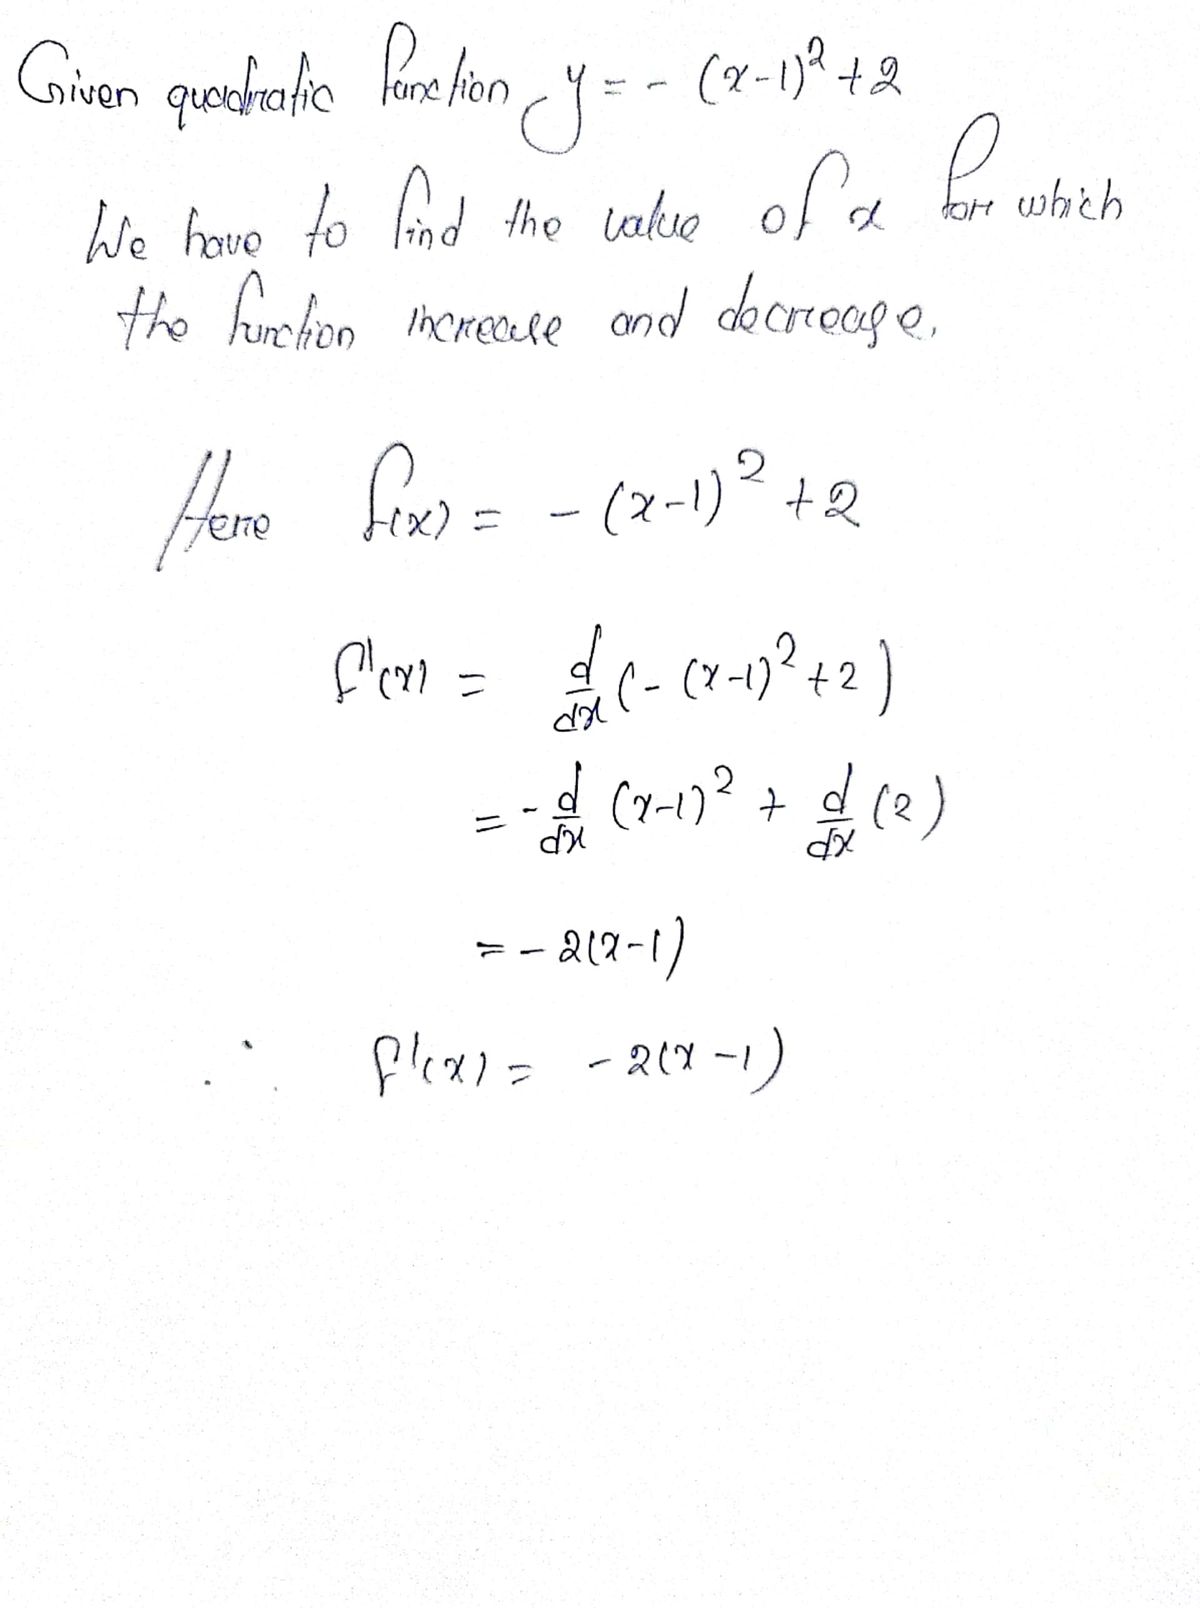 Given quadratic function, y = - (x-1)² + 2
We have to find the value of x for which
the function increase and decrease.
Here f(x) = - (x-1)² + 2
f'(x) = d/dx (- (x-1)² + 2)
= - d/dx (x-1)² + d/dx (2)
= - 2(x-1)
∴ f'(x) = - 2(x-1)